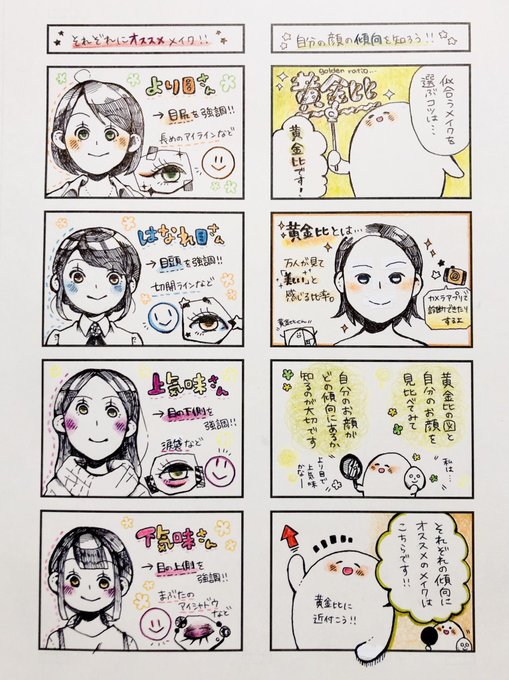 自分の顔の傾向を知ろう!!
似合うメイクを
選ぶコツは…
golden ratio...
黄金比
黄金比です!
黄金比とは…
万人が見て
"美しい"と
感じる比率。
カメラアプリで
診断できたり
するよ
黄金比の図と
自分のお顔を
見比べてみて
自分のお顔が
どの傾向にあるか
知るのが大切です
私は…
より目で
上気味
かなー
それぞれの傾向に
オススメのメイクは
こちらです!!
黄金比に
近付こう!!
それぞれにオススメメイク!!
より目さん
→目尻を強調!!
長めのアイラインなど
はなれ目さん
→目頭を強調!!
切開ラインなど
上気味さん
→目の下側を
強調!!
涙袋など
下気味さん
→目の上側を
強調!!
まぶたの
アイシャドウ
など